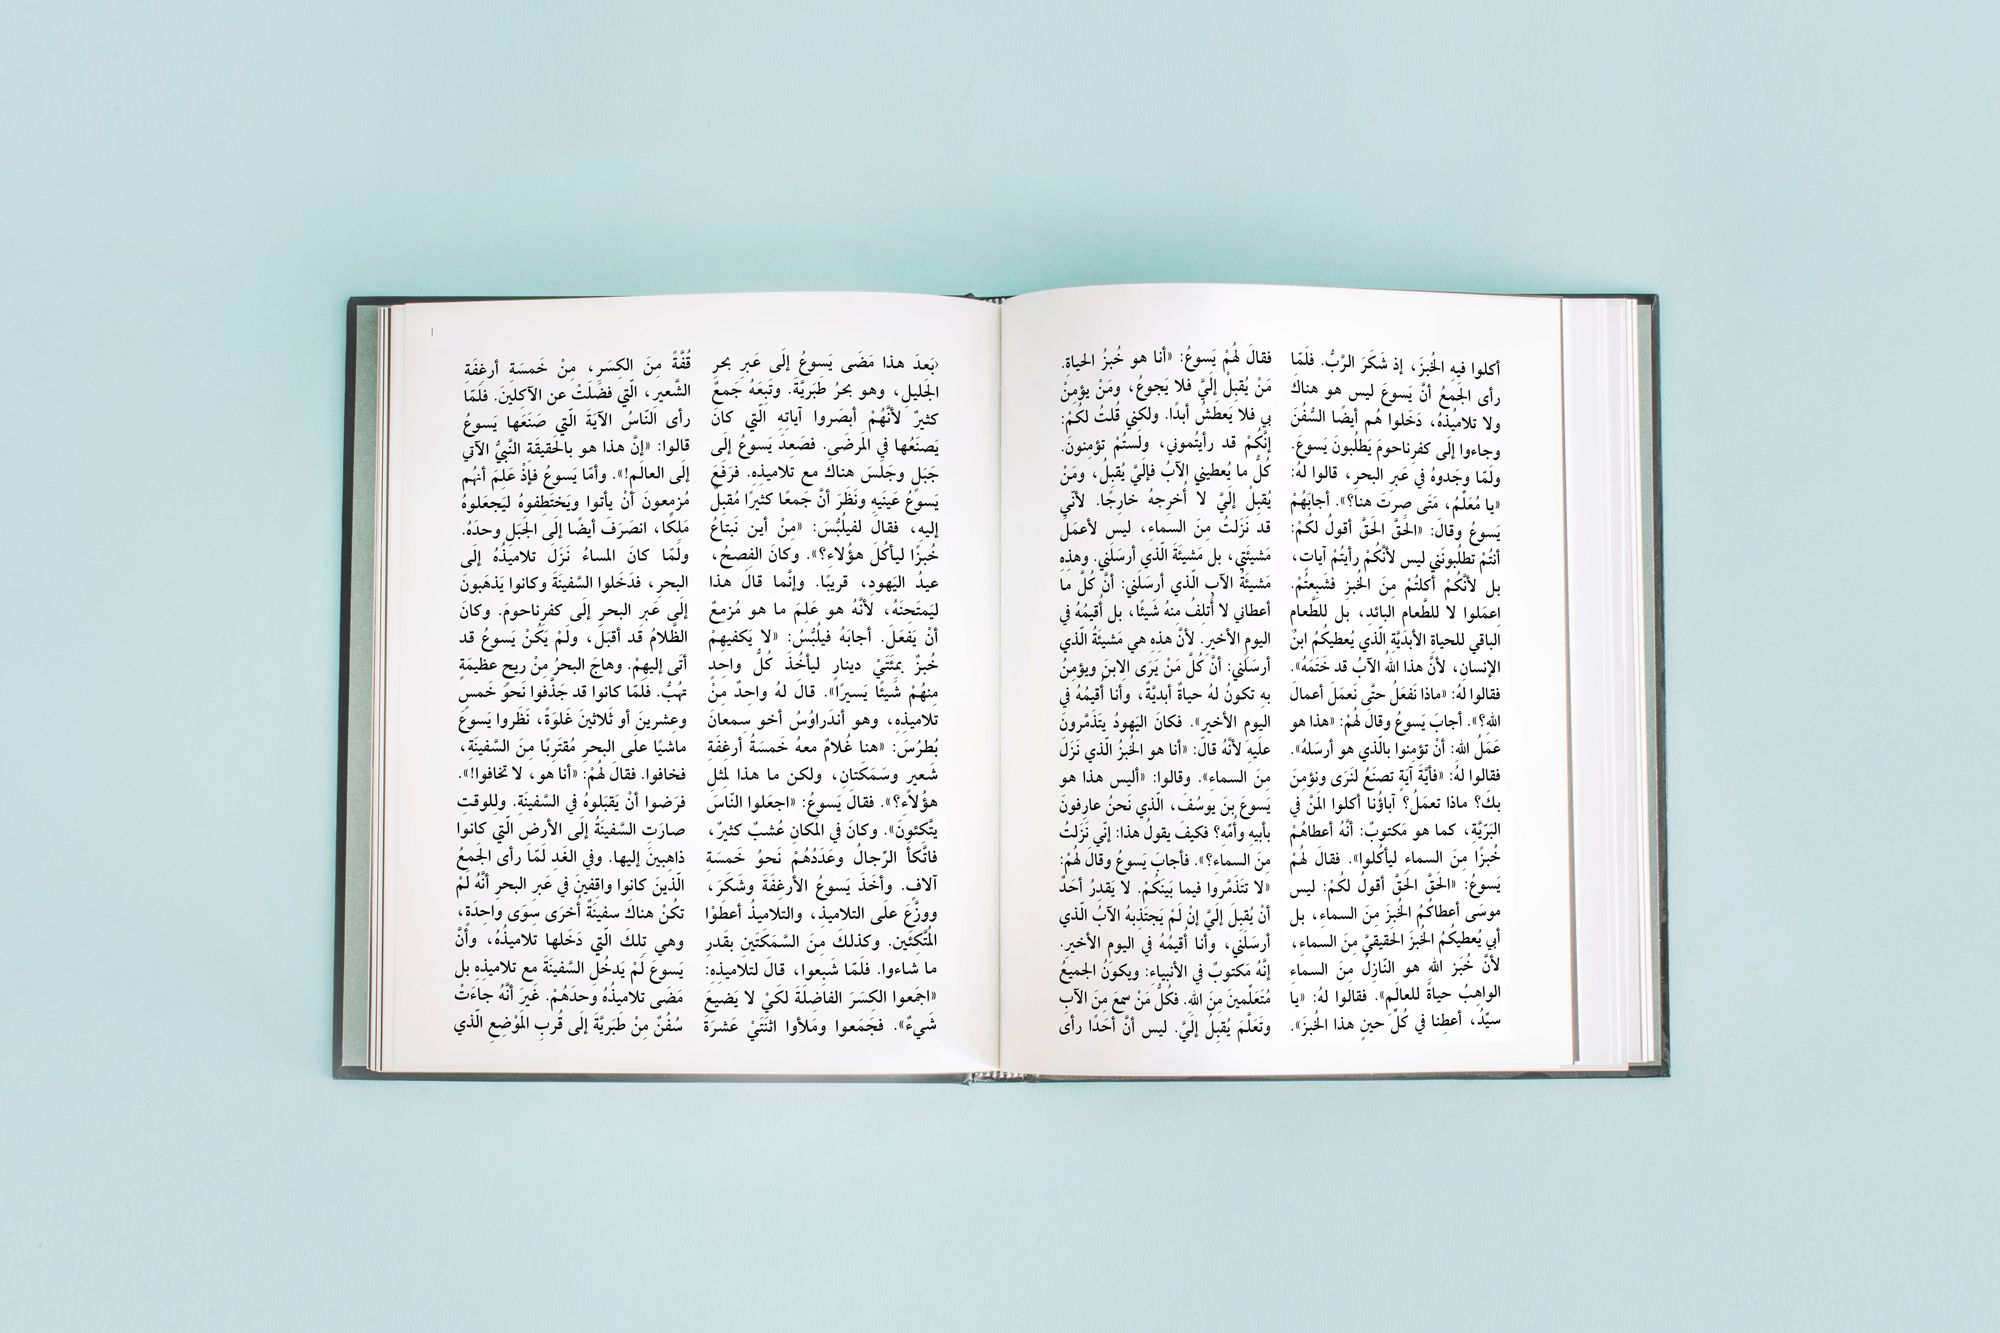 ١
﴿بَعدَ هذا مَضَى يَسوعُ إلَى عَبرِ بحرِ
الجَليلِ، وهو بحرُ طَبَريَّةَ. وتبَعَهُ جَمعٌ
كثيرٌ لأنَّهُمْ أبصَروا آياتِهِ الّتي كانَ
يَصنَعُها في المَرضَى. فصَعِدَ يَسوعُ إلَى
جَبَلٍ وجَلسَ هناك مع تلاميذِهِ. فرَفَعَ
يَسوعُ عَينَيهِ ونَظَرَ أنَّ جَمعًا كثيرًا مُقبِلٌ
إليهِ، فقالَ لفيلُبُّسَ: «مِنْ أين نَبتاعُ
خُبزًا ليأكُلَ هؤُلاءِ؟». وكانَ الفِصحُ،
عيدُ اليَهودِ، قريبًا. وإنَّما قالَ هذا
ليَمتَحِنَهُ، لأنَّهُ هو عَلِمَ ما هو مُزمِعٌ
أنْ يَفعَلَ. أجابَهُ فيلُبُّسُ: «لا يَكفيهِمْ
خُبزٌ بمِئَتَيْ دينارٍ ليأخُذَ كُلُّ واحِدٍ
مِنهُمْ شَيئًا يَسيرًا». قالَ لهُ واحِدٌ مِنْ
تلاميذِهِ، وهو أندَراوُسُ أخو سِمعانَ
بُطرُسَ: «هنا غُلامٌ معه خَمسَةُ أرغِفَةِ
شَعيرٍ وسَمَكَتانِ، ولكن ما هذا لمِثلِ
هؤُلاءِ؟». فقالَ يَسوعُ: «اجعَلوا النّاسَ
يتَّكِئونَ». وكانَ في المَكانِ عُشبٌ كثيرٌ،
فاتَّكأَ الرِّجالُ وعَدَدُهُمْ نَحوُ خَمسَةِ
آلافٍ. وأخَذَ يَسوعُ الأرغِفَةَ وشَكَرَ،
ووزَّعَ علَى التلاميذِ، والتلاميذُ أعطَوْا
المُتَّكِئينَ. وكذلكَ مِنَ السَّمَكَتَينِ بقَدرِ
ما شاءوا. فلَمّا شَبِعوا، قالَ لتلاميذِهِ:
«اجمَعوا الكِسَرَ الفاضِلَةَ لكَيْ لا يَضيعَ
شَيءٌ». فجَمَعوا ومَلأوا اثنَتَيْ عَشرَةَ
قُفَّةً مِنَ الكِسَرِ، مِنْ خَمسَةِ أرغِفَةِ
الشَّعيرِ، الّتي فضَلَتْ عن الآكِلينَ. فلَمّا
رأى النّاسُ الآيَةَ الّتي صَنَعَها يَسوعُ
قالوا: «إنَّ هذا هو بالحَقيقَةِ النَّبيُّ الآتي
إلَى العالَمِ!». وأمّا يَسوعُ فإذْ عَلِمَ أنهُم
مُزمِعونَ أنْ يأتوا ويَختَطِفوهُ ليَجعَلوهُ
مَلِكًا، انصَرَفَ أيضًا إلَى الجَبَلِ وحدَهُ.
ولَمّا كانَ المساءُ نَزَلَ تلاميذُهُ إلَى
البحرِ، فدَخَلوا السَّفينَةَ وكانوا يَذهَبونَ
إلَى عَبرِ البحرِ إلَى كفرِناحومَ. وكانَ
الظَّلامُ قد أقبَلَ، ولَمْ يَكُنْ يَسوعُ قد
أتَى إليهِمْ. وهاجَ البحرُ مِنْ ريحٍ عظيمَةٍ
تهُبُّ. فلَمّا كانوا قد جَذَّفوا نَحوَ خَمسٍ
وعِشرينَ أو ثَلاثينَ غَلوَةً، نَظَروا يَسوعَ
ماشيًا علَى البحرِ مُقتَرِبًا مِنَ السَّفينَةِ،
فخافوا. فقالَ لهُمْ: «أنا هو، لا تخافوا!».
فرَضوا أنْ يَقبَلوهُ في السَّفينَةِ. وللوقتِ
صارَتِ السَّفينَةُ إلَى الأرضِ الّتي كانوا
ذاهِبينَ إليها. وفي الغَدِ لَمّا رأى الجَمعُ
الّذينَ كانوا واقِفينَ في عَبرِ البحرِ أنَّهُ لَمْ
تكُنْ هناكَ سفينَةٌ أُخرَى سِوَى واحِدَةٍ،
وهي تِلكَ الّتي دَخَلها تلاميذُهُ، وأنَّ
يَسوعَ لَمْ يَدخُلِ السَّفينَةَ مع تلاميذِهِ بل
مَضَى تلاميذُهُ وحدَهُمْ. غَيرَ أنَّهُ جاءَتْ
سُفُنٌ مِنْ طَبَريَّةَ إلَى قُربِ المَوْضِعِ الّذي
أكلوا فيه الخُبزَ، إذ شَكَرَ الرَّبُّ. فلَمّا
رأى الجَمعُ أنَّ يَسوعَ ليس هو هناكَ
ولا تلاميذُهُ، دَخَلوا هُم أيضًا السُّفُنَ
وجاءوا إلَى كفرِناحومَ يَطلُبونَ يَسوعَ.
ولَمّا وجَدوهُ في عَبرِ البحرِ، قالوا لهُ:
«يا مُعَلِّمُ، مَتَى صِرتَ هنا؟». أجابَهُمْ
يَسوعُ وقالَ: «الحَقَّ الحَقَّ أقولُ لكُمْ:
أنتُمْ تطلُبونَني ليس لأنَّكُمْ رأيتُمْ آياتٍ،
بل لأنَّكُمْ أكلتُمْ مِنَ الخُبزِ فشَبِعتُمْ.
اِعمَلوا لا للطَّعامِ البائدِ، بل للطَّعامِ
الباقي للحياةِ الأبديَّةِ الّذي يُعطيكُمُ ابنُ
الإنسانِ، لأنَّ هذا اللهُ الآبُ قد خَتَمَهُ».
فقالوا لهُ: «ماذا نَفعَلُ حتَّى نَعمَلَ أعمالَ
اللهِ؟». أجابَ يَسوعُ وقالَ لهُمْ: «هذا هو
عَمَلُ اللهِ: أنْ تؤمِنوا بالّذي هو أرسَلهُ».
فقالوا لهُ: «فأيَّةَ آيَةٍ تصنَعُ لنَرَى ونؤمِنَ
بكَ؟ ماذا تعمَلُ؟ آباؤُنا أكلوا المَنَّ في
البَرّيَّةِ، كما هو مَكتوبٌ: أنَّهُ أعطاهُمْ
خُبزًا مِنَ السماءِ ليأكُلوا». فقالَ لهُمْ
يَسوعُ: «الحَقَّ الحَقَّ أقولُ لكُمْ: ليس
موسَى أعطاكُمُ الخُبزَ مِنَ السماءِ، بل
أبي يُعطيكُمُ الخُبزَ الحَقيقيَّ مِنَ السماءِ،
لأنَّ خُبزَ اللهِ هو النّازِلُ مِنَ السماءِ
الواهِبُ حياةً للعالَمِ». فقالوا لهُ: «يا
سيِّدُ، أعطِنا في كُلِّ حينٍ هذا الخُبزَ».
فقالَ لهُمْ يَسوعُ: «أنا هو خُبزُ الحياةِ.
مَنْ يُقبِلْ إليَّ فلا يَجوعُ، ومَنْ يؤمِنْ
بي فلا يَعطشُ أبدًا. ولكني قُلتُ لكُمْ:
إنَّكُمْ قد رأيتُموني، ولَستُمْ تؤمِنونَ.
كُلُّ ما يُعطيني الآبُ فإلَيَّ يُقبِلُ، ومَنْ
يُقبِلْ إليَّ لا أُخرِجهُ خارِجًا. لأنّي
قد نَزَلتُ مِنَ السماءِ، ليس لأعمَلَ
مَشيئَتي، بل مَشيئَةَ الّذي أرسَلني. وهذِهِ
مَشيئَةُ الآبِ الّذي أرسَلني: أنَّ كُلَّ ما
أعطاني لا أُتلِفُ مِنهُ شَيئًا، بل أُقيمُهُ في
اليومِ الأخيرِ. لأنَّ هذِهِ هي مَشيئَةُ الّذي
أرسَلني: أنَّ كُلَّ مَنْ يَرَى الِابنَ ويؤمِنُ
بهِ تكونُ لهُ حياةٌ أبديَّةٌ، وأنا أُقيمُهُ في
اليومِ الأخيرِ». فكانَ اليَهودُ يتَذَمَّرونَ
علَيهِ لأنَّهُ قالَ: «أنا هو الخُبزُ الّذي نَزَلَ
مِنَ السماءِ». وقالوا: «أليس هذا هو
يَسوعَ بنَ يوسُفَ، الّذي نَحنُ عارِفونَ
بأبيهِ وأُمِّهِ؟ فكيفَ يقولُ هذا: إنّي نَزَلتُ
مِنَ السماءِ؟». فأجابَ يَسوعُ وقالَ لهُمْ:
«لا تتَذَمَّروا فيما بَينَكُمْ. لا يَقدِرُ أحَدٌ
أنْ يُقبِلَ إليَّ إنْ لَمْ يَجتَذِبهُ الآبُ الّذي
أرسَلَني، وأنا أُقيمُهُ في اليومِ الأخيرِ.
إنَّهُ مَكتوبٌ في الأنبياءِ: ويكونُ الجميعُ
مُتَعَلِّمينَ مِنَ اللهِ. فكُلُّ مَنْ سمِعَ مِنَ الآبِ
وتَعَلَّمَ يُقبِلُ إلَيَّ. ليس أنَّ أحَدًا رأى